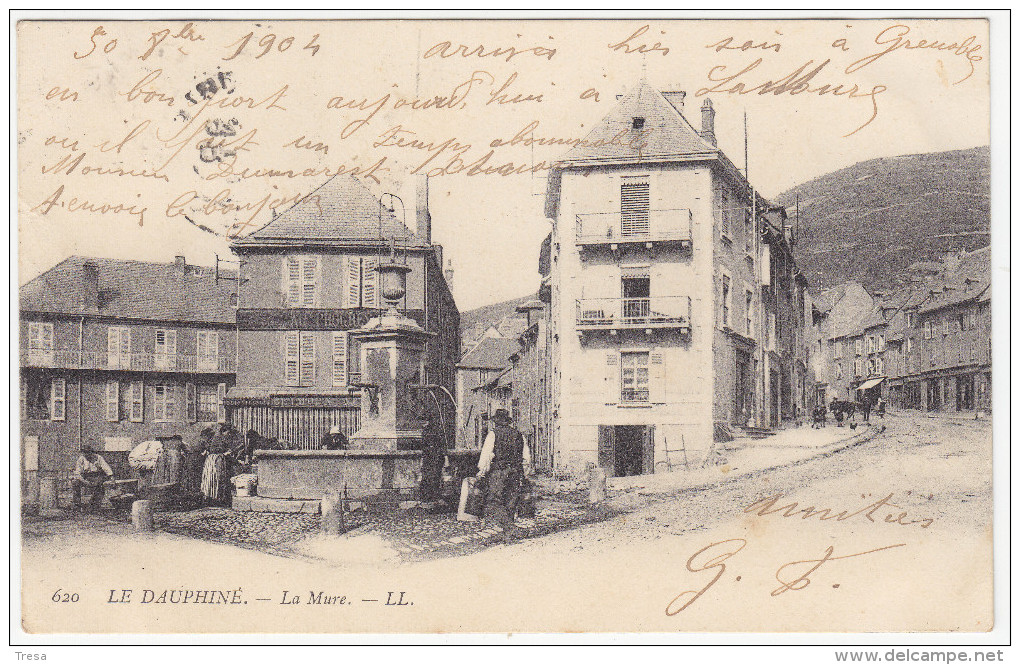 30 8bre 1904 arrivés hier soir à Grenoble
en bon port aujourd'hui à Lamure
ou il fait un temps abominable
Monsieur Dumarest
t'envoie le bonjour
Amitiés
G. F.
620 LE DAUPHINÉ. — La Mure. — LL.
Tresa
www.delcampe.net